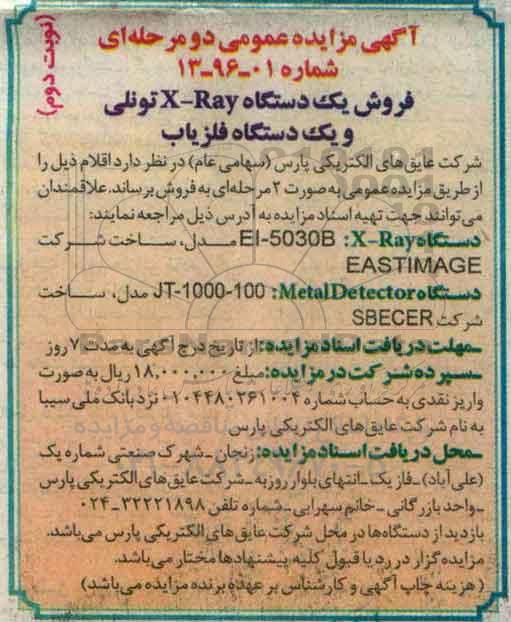 (نوبت دوم)
آگهی مزایده عمومی دو مرحله‌ای
شماره ۰۱-۹۶-۱۳
فروش یک دستگاه X-Ray تونلی
و یک دستگاه فلزیاب
شرکت عایق های الکتریکی پارس (سهامی عام) در نظر دارد اقلام ذیل را
از طریق مزایده عمومی به صورت ۲ مرحله‌ای به فروش برساند. علاقمندان
می‌توانند جهت تهیه اسناد مزایده به آدرس ذیل مراجعه نمایند:
دستگاه X-Ray: EI-5030B مدل، ساخت شرکت
EASTIMAGE
دستگاه MetalDetector: JT-1000-100 مدل، ساخت
شرکت SBECER
ـمهلت دریافت اسناد مزایده: از تاریخ درج آگهی به مدت ۷ روز
ـسپرده شرکت در مزایده: مبلغ ۱۸,۰۰۰,۰۰۰ ریال به صورت
واریز نقدی به حساب شماره ۰۱۰۴۴۸۰۲۶۱۰۰۴ نزد بانک ملی سیبا
به نام شرکت عایق های الکتریکی پارس
ـمحل دریافت اسناد مزایده: زنجان ـ شهرک صنعتی شماره یک
(علی آباد) ـ فاز یک ـ انتهای بلوار روزبه ـ شرکت عایق های الکتریکی پارس
ـ واحد بازرگانی ـ خانم سهرابی ـ شماره تلفن ۳۲۲۲۱۸۹۸-۰۲۴
بازدید از دستگاه‌ها در محل شرکت عایق های الکتریکی پارس می‌باشد.
مزایده گزار در رد یا قبول کلیه پیشنهادها مختار می‌باشد.
(هزینه چاپ آگهی و کارشناس بر عهده برنده مزایده می‌باشد)